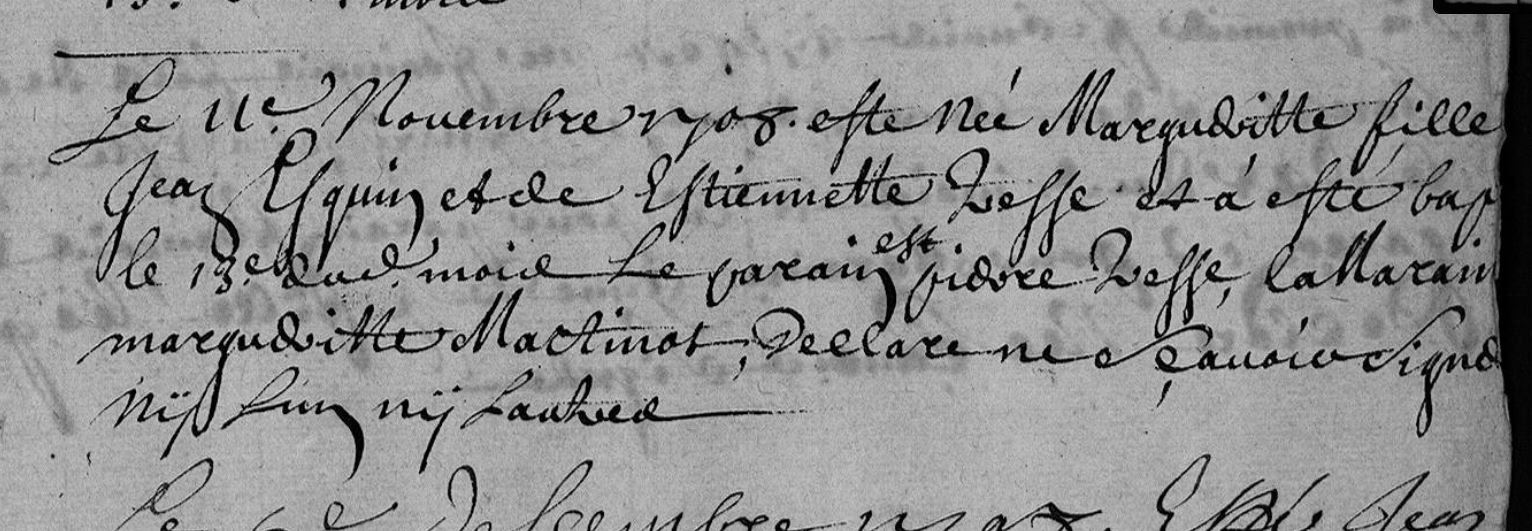 Le 11e. Novembre 1708. este Née Margueritte fille
Jean Esquin et de Estiennette Vesse et á esté bap
le 13e dud. mois Le parain est pierre Vesse, la Marain
margueritte Mactinot, Declare ne Sçauoir Signe
Nij Lun nij Lautre